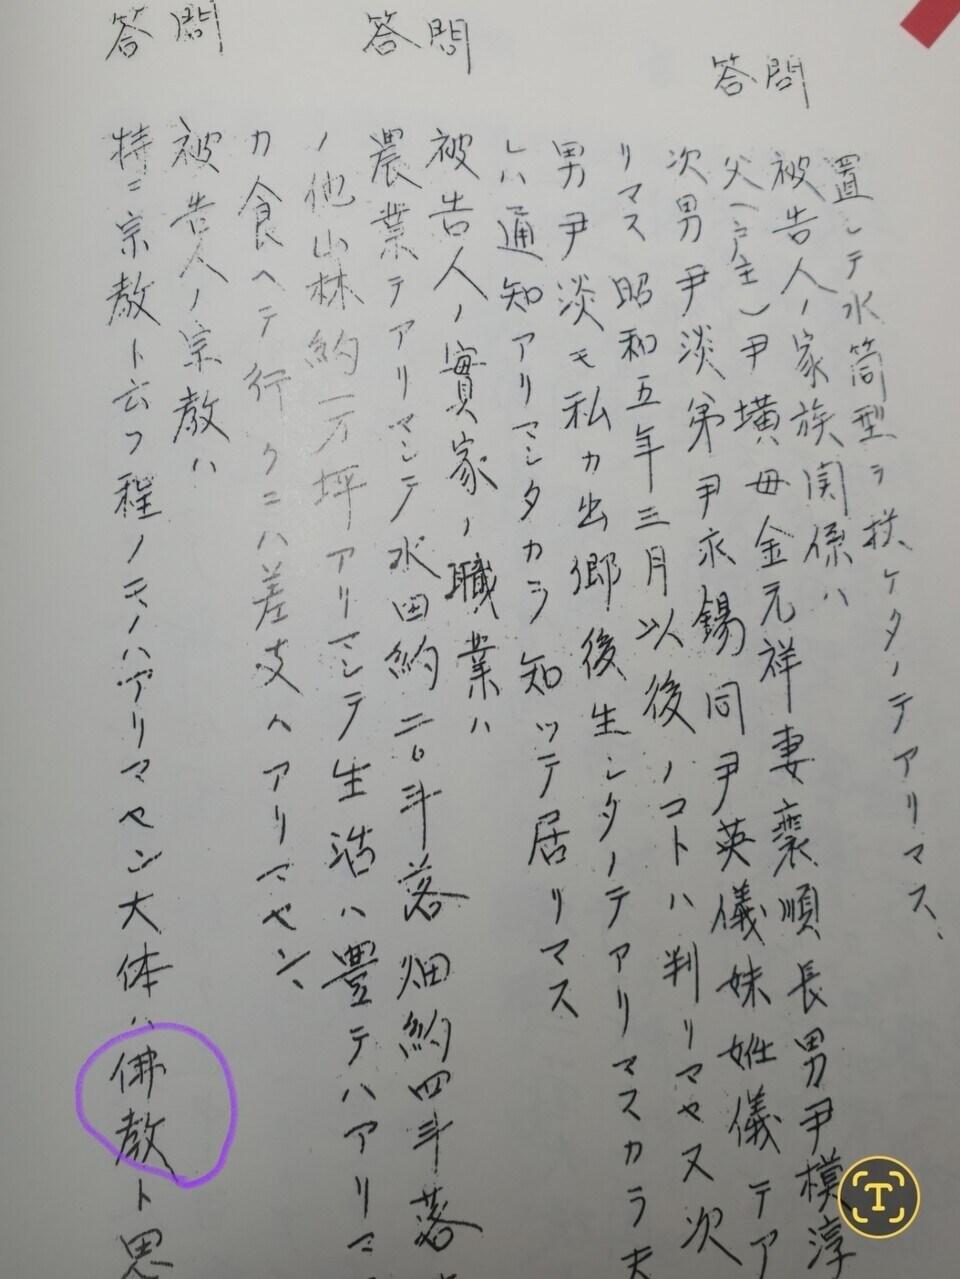 置シテ水筒型ヲ扷ケタノテアリマス、
問 被告人ノ家族関係ハ
答 父(戸主)尹墴母金元祥妻裵順長男尹模淳
次男尹淡弟尹永錫同尹英儀妹姙儀テア
リマス昭和五年三月以後ノコトハ判リマセヌ次
男尹淡モ私カ出郷後生レタノテアリマスカラ夫
レハ通知アリマシタカラ知ッテ居リマス
問 被告人ノ實家ノ職業ハ
答 農業テアリマシテ水田約二〇斗落畑約四斗落
ノ他山林約一万坪アリマシテ生活ハ豊テハアリマ
カ食ヘテ行クニハ差支ヘアリマセン、
問 被告人ノ宗教ハ
答 特ニ宗教ト云フ程ノモノハアリマセン大体ハ佛教ト思